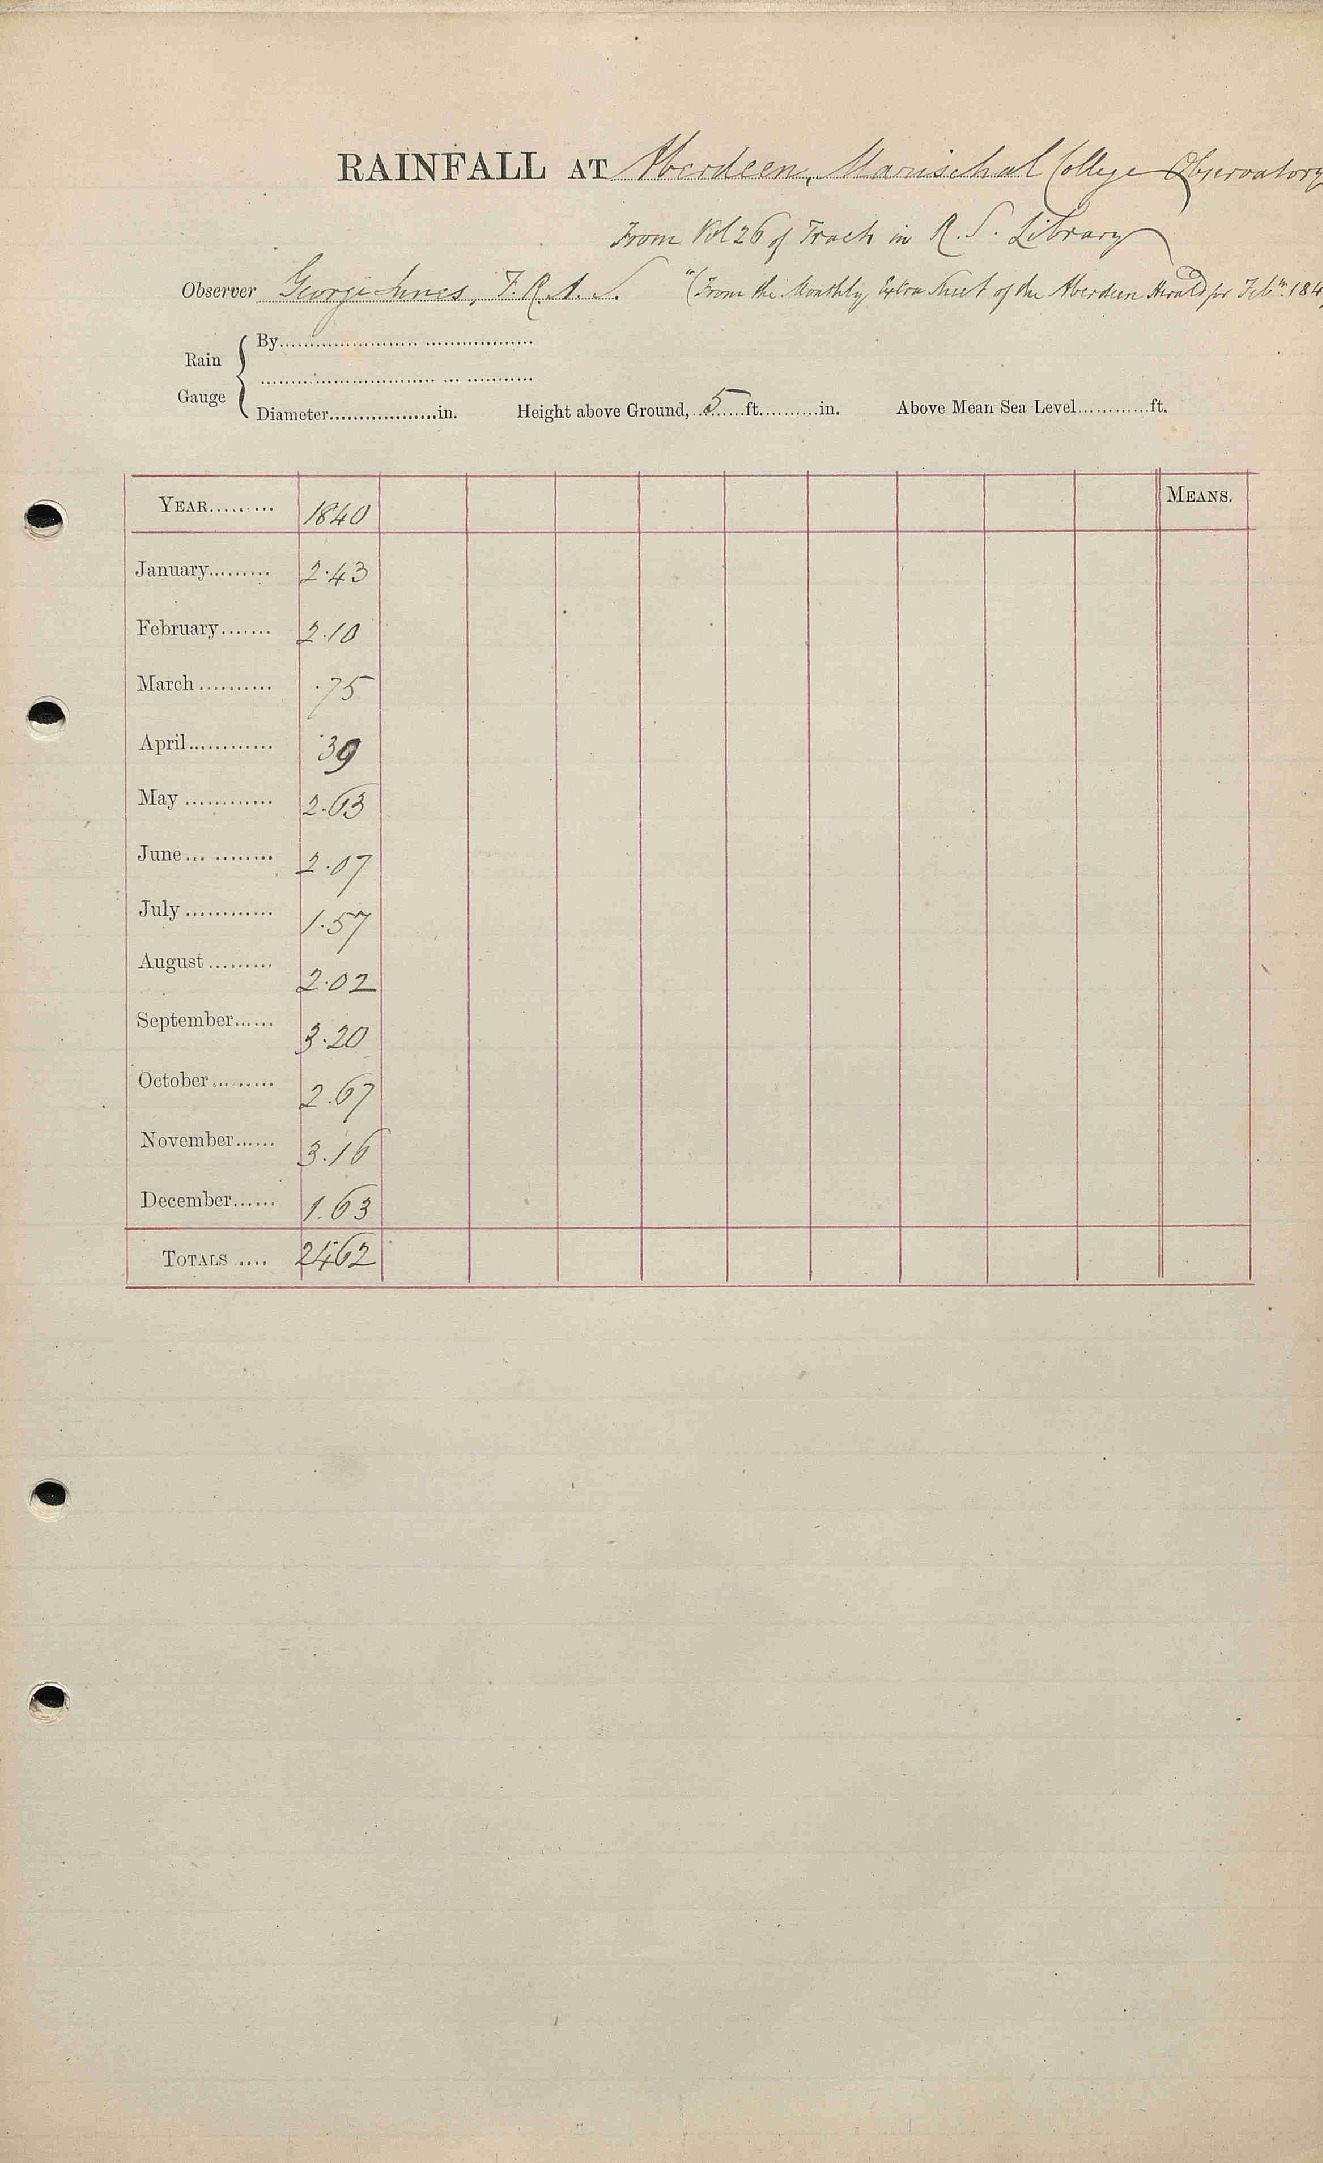 RAINFALL AT Aberdeen, Marischal College Observatory
From Vol 26 of Tracts in R. S. Library
Observer George Innes, F.R.A.S. "(From the Monthly Extra Sheet of the Aberdeen Herald for Feby. 184
Rain Gauge { By
Diameter in. Height above Ground, 5 ft. in. Above Mean Sea Level ft.
YEAR 1840 MEANS.
January 2.43
February 2.10
March .75
April .39
May 2.63
June 2.07
July 1.57
August 2.02
September 3.20
October 2.67
November 3.16
December 1.63
TOTALS 2462